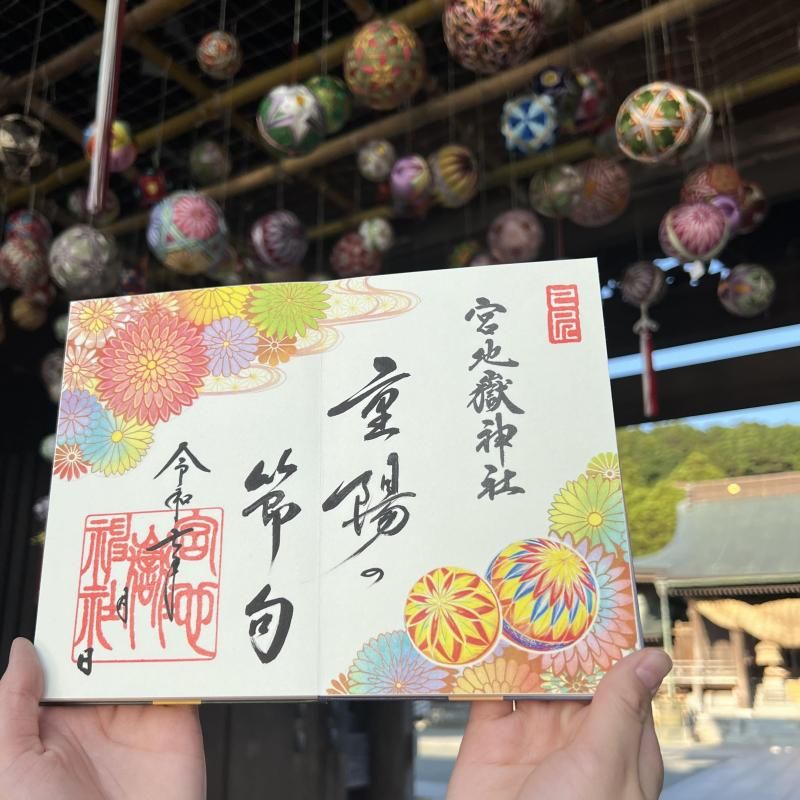 宮地嶽神社
重陽の
節句
令和七年 月 日
宮地
嶽
神社